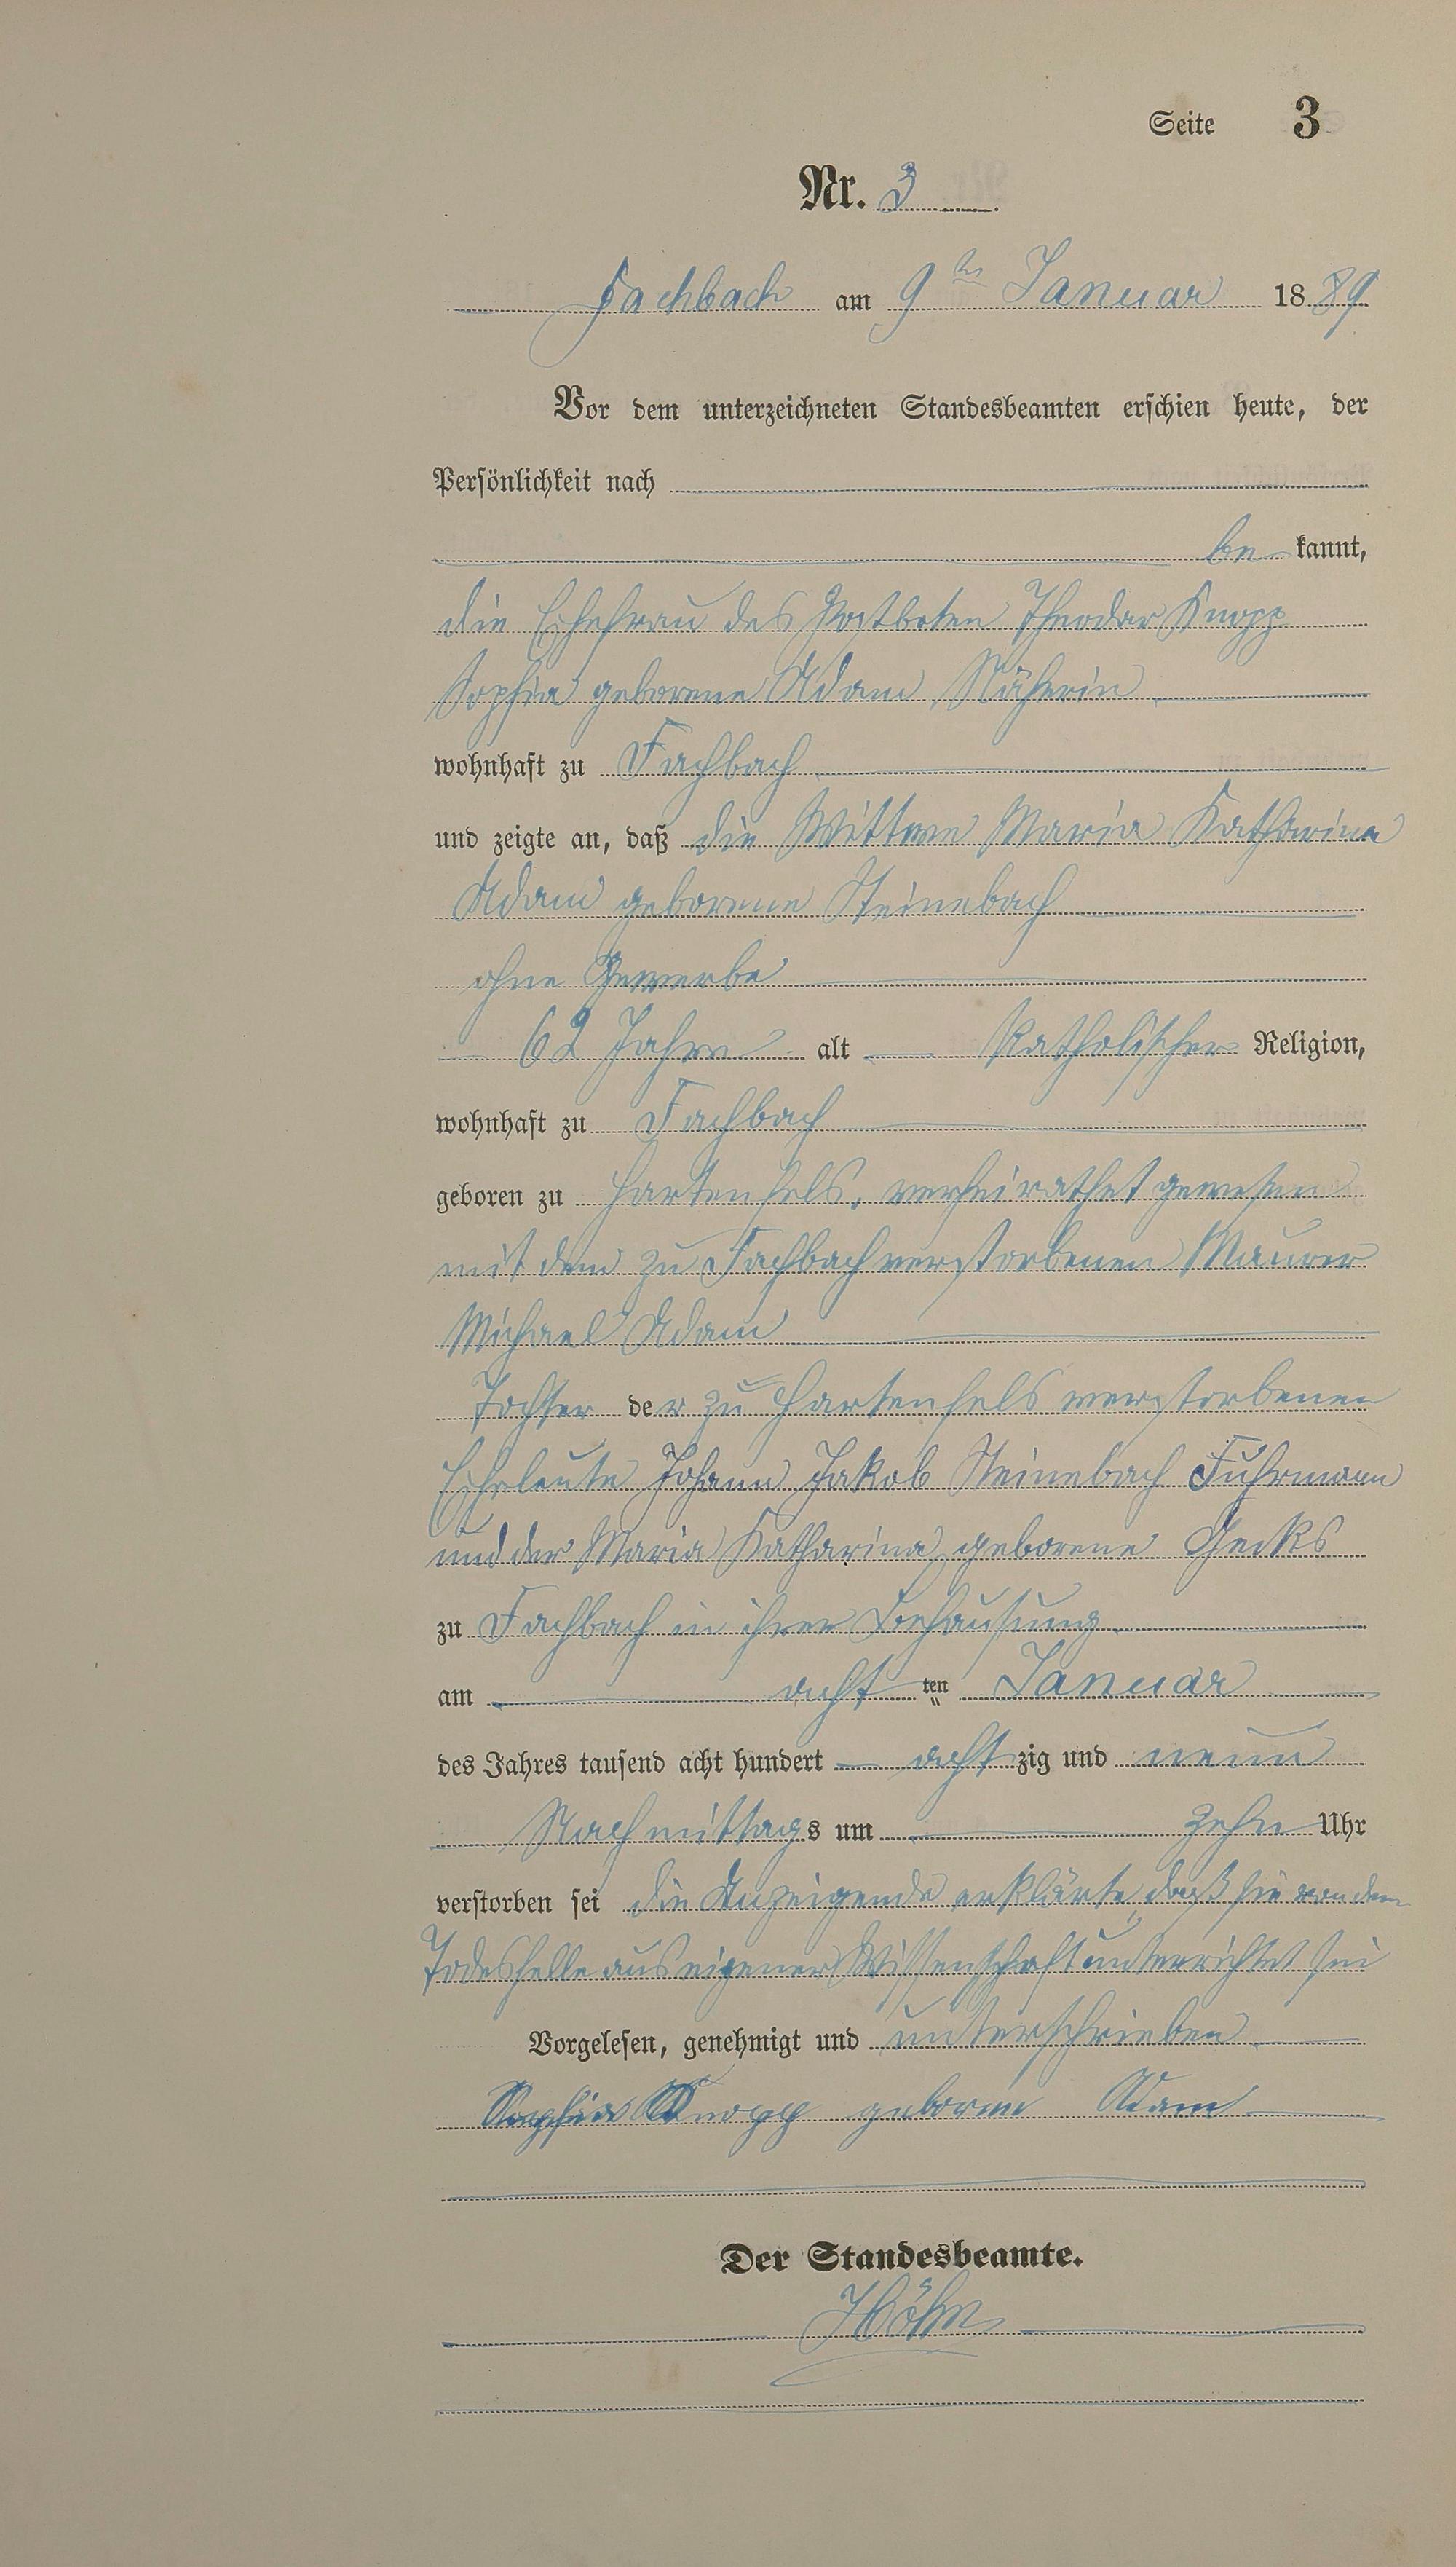 Seite 3
Nr. 3
Fachbach am 9ten Januar 1889
Vor dem unterzeichneten Standesbeamten erschien heute, der
Persönlichkeit nach
be kannt,
die Ehefrau des Postboten Theodor Knopp
Sophia geborene Adam, Näherin
wohnhaft zu Fachbach
und zeigte an, daß die Wittwe Maria Katharina
Adam geborene Steinebach
ohne Gewerbe
62 Jahre alt Katholischer Religion,
wohnhaft zu Fachbach
geboren zu Hartenfels, verheirathet gewesen
mit dem zu Fachbach verstorbenen Maurer
Michael Adam
Tochter der zu Hartenfels verstorbenen
Eheleute Johann Jakob Steinebach Fuhrmann
und der Maria Katharina geborene
zu Fachbach in ihrer Behausung
am acht ten Januar
des Jahres tausend acht hundert acht zig und neun
Nachmittags um zehn Uhr
verstorben sei die Anzeigende erklärte, daß sie von dem
Todesfalle aus eigener Wissenschaft unterrichtet sei
Vorgelesen, genehmigt und unterschrieben
Sophia Knopp geborene Adam
Der Standesbeamte.
Höhn